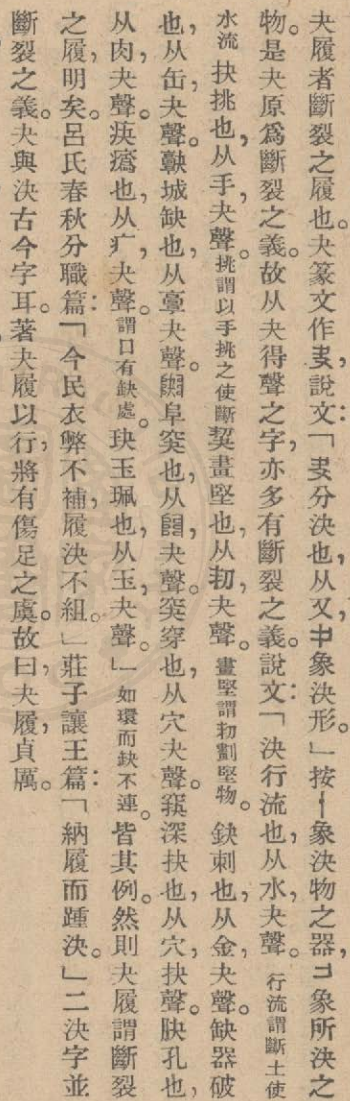 夬履者斷裂之履也。夬篆文作叏，說文：「叏分決也，从又，屮象決形。」按丨象決物之器，コ象所決之
物。是夬原爲斷裂之義。故从夬得聲之字，亦多有斷裂之義。說文：「決行流也，从水，夬聲。行流謂斷土使
水流 抉挑也，从手，夬聲。挑謂以手挑之使斷 契畫堅也，从㓞，夬聲。畫堅謂㓞劃堅物。 鈌刺也，从金，夬聲。缺器破
也，从缶，夬聲。𩫏城缺也，从𩫖夬聲。 阜突也，从 夬聲。突穿也，从穴夬聲。 深抉也，从穴，抉聲。肤孔也，
从肉夬聲。疦瘑也，从疒，夬聲。謂口有缺處。玦玉珮也，从玉，夬聲。」如環而缺不連。皆其例。然則夬履謂斷裂
之履，明矣。呂氏春秋分職篇：「今民衣弊不補，履決不組。」莊子讓王篇：「納履而踵決。」二決字並
斷裂之義。夬與決古今字耳。著夬履以行，將有傷足之虞。故曰，夬履貞厲。